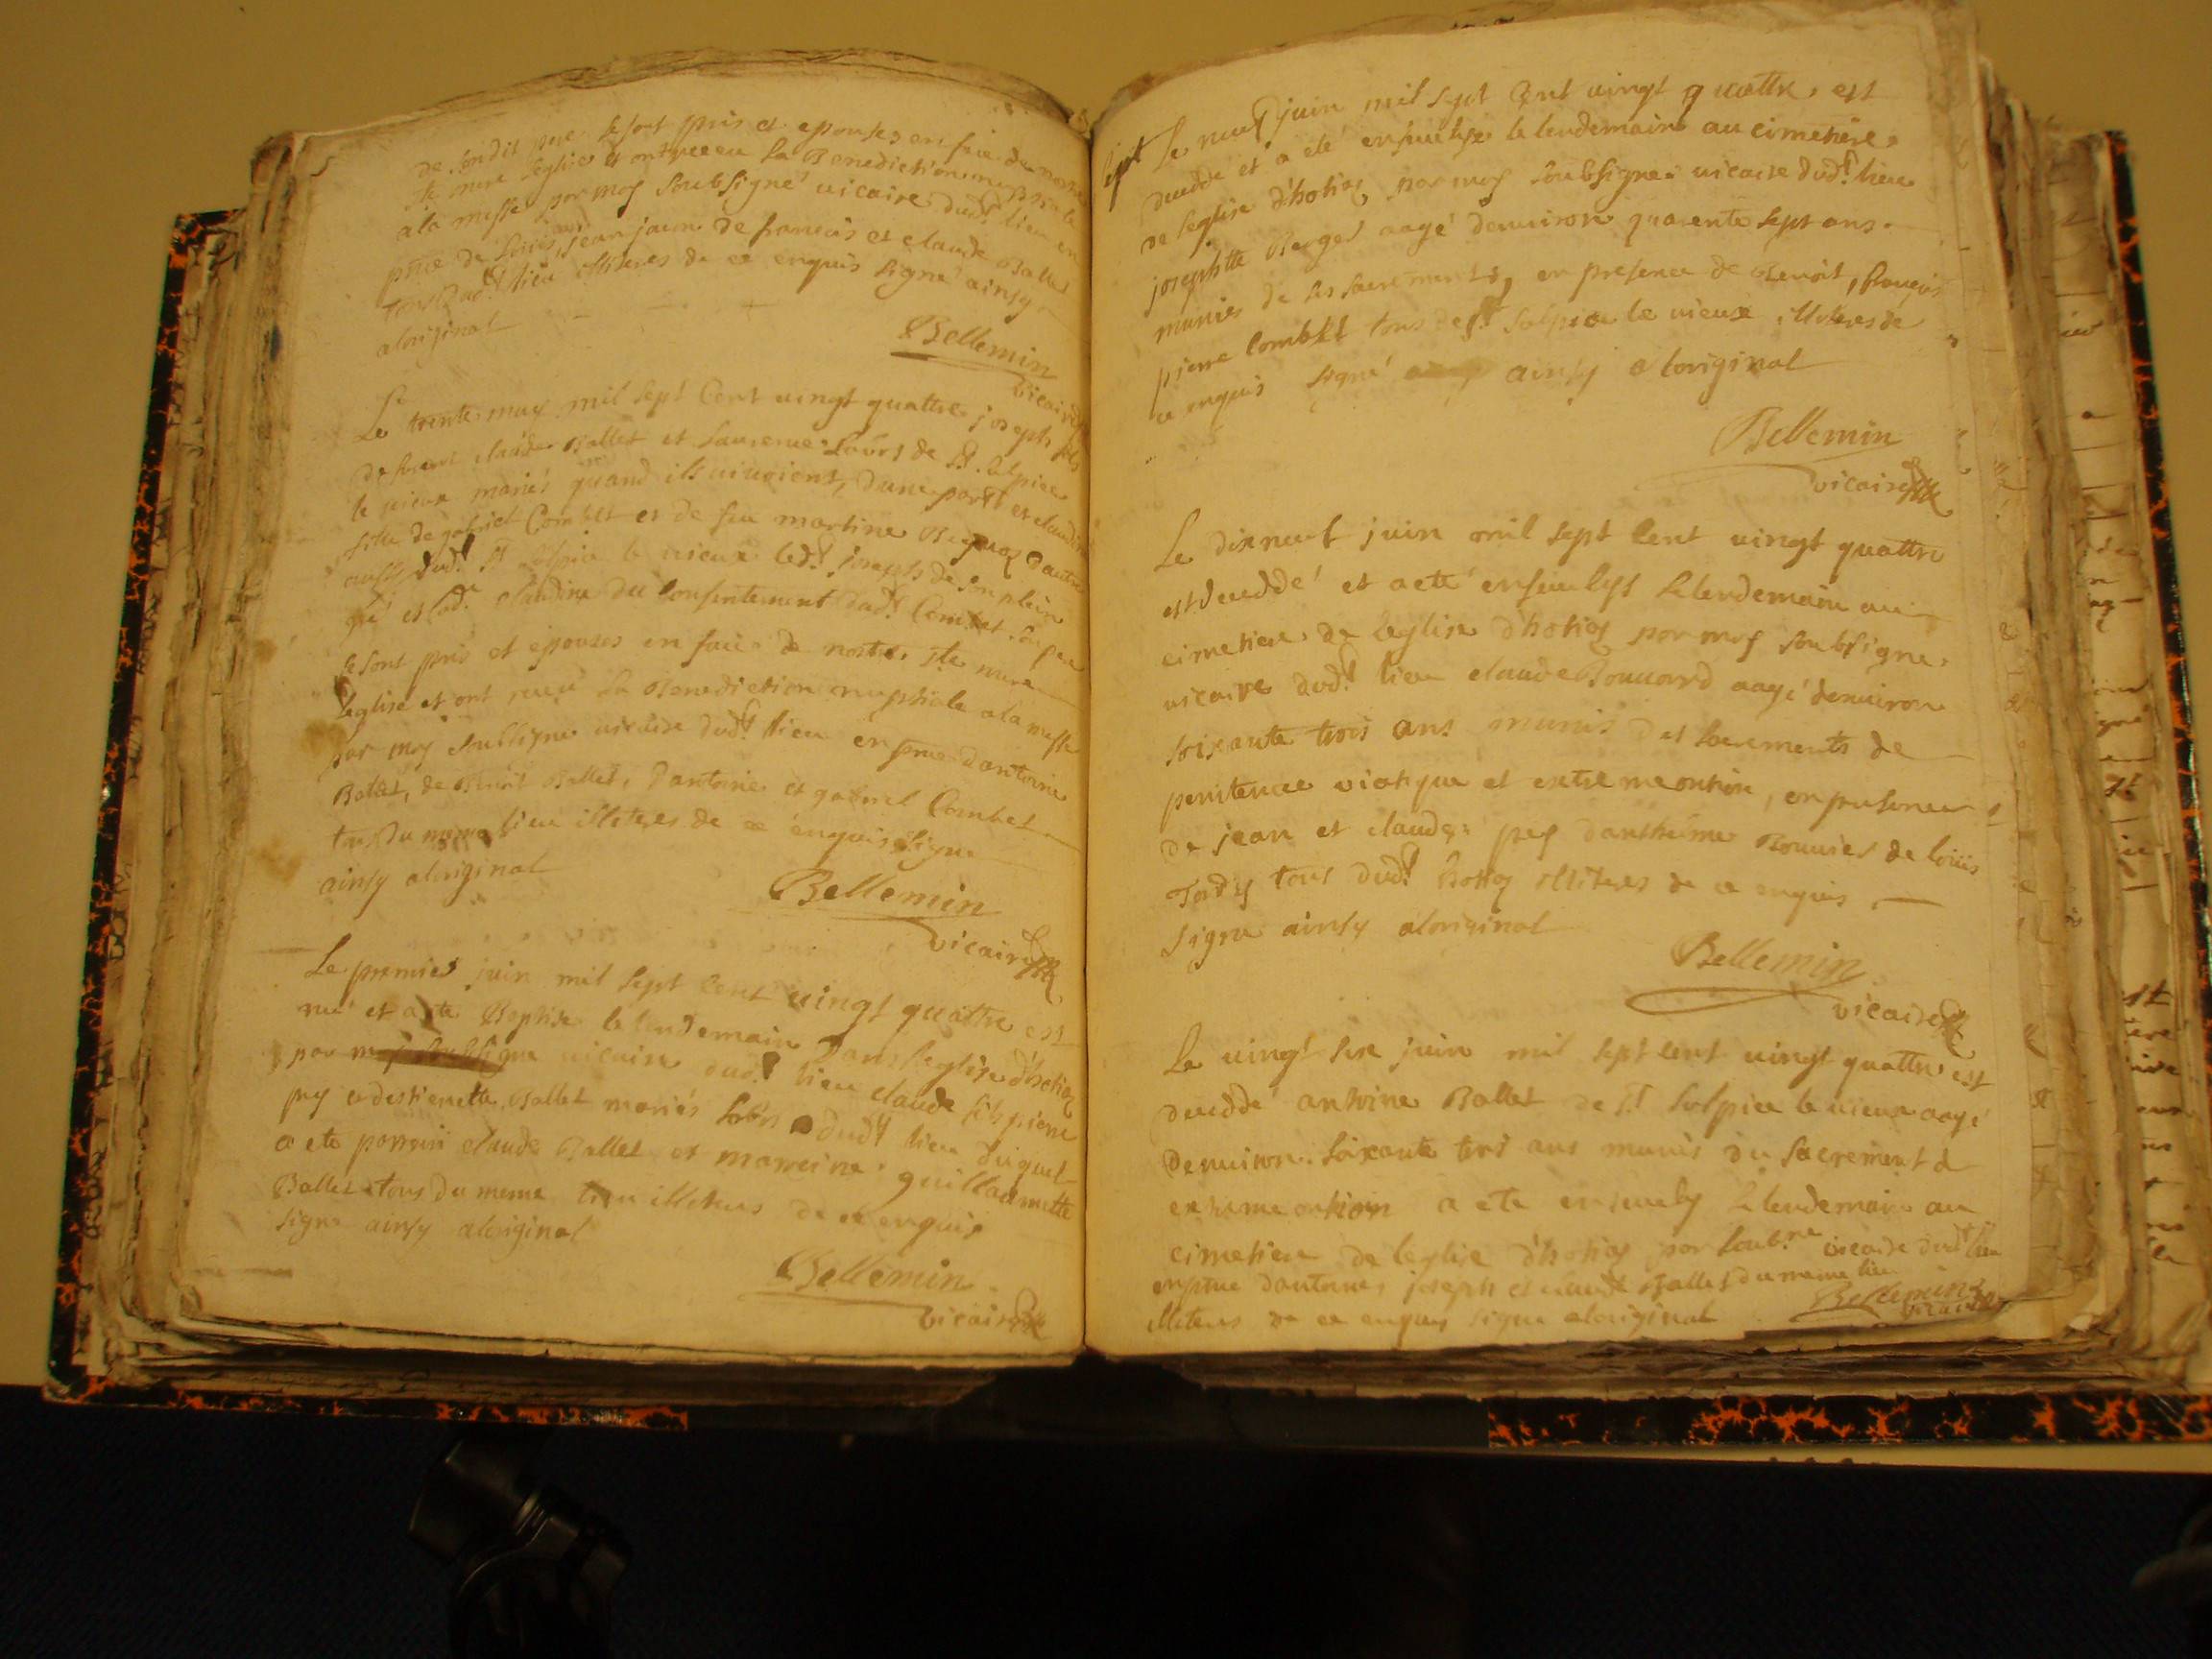 de sondit pere se sont pris et epouses en face de nostre
ste mere leglise et ont receu la Benediction nuptiale
a la messe par moy soubsigné vicaire dud.t lieu en
pnce de Loüis, jean jacm de francois et claude Ballet
tous dud.t lieu illiteres de ce enquis signé ainsy
aloriginal
Bellemin
vicaire
Le trente may mil sept cent vingt quattre joseph fils
de claude Ballet et Laurence de St. Sulpice
le vieux mariés quand ils vivoient, dune part et claudine
fille de gabriel Combet et de feu martine dautre
aussy dud.t St Sulpice le vieux led.t joseph de son plein
gré et lad.e claudine du consentement dud.t Combet son pere
se sont pris et epouses en face de nostre ste mere
leglise et ont receu la Benediction nuptiale a la messe
par moy soubsigne vicaire dud.t lieu en pnce dantoine
Ballet, de Benoit Ballet, dantoine et gabriel Combet
tous du meme lieu illiteres de ce enquis signe
ainsy aloriginal
Bellemin
vicaire
Le premier juin mil sept cent vingt quattre est
né et a ete Baptise le lendemain dans leglise d'hotioz
par moy soubsigne vicaire dud.t lieu claude fils pierre
pey et destienette Ballet mariés dud.t lieu duquel
a ete parrain claude Ballet et marreine guillaumette
Ballet tous du meme lieu illiteres de ce enquis
signe ainsy aloriginal
Bellemin
vicaire
Le neuf juin mil sept cent vingt quattre, est
decedde et a eté ensevelye le lendemain au cimetiere
de leglise d'hotioz par moy soubsigné vicaire dud.t lieu
josephte Berger aagé denviron quarente sept ans
munies de ses sacrements, en presence de Benoit, françois
pierre Combet tous de St Sulpice le vieux illiteres de
ce enquis signé ainsy a loriginal
Bellemin
vicaire
Le dixneuf juin mil sept cent vingt quattre
est decedde et a eté ensevelys le lendemain au
cimetiere de leglise d'hotioz par moy soubsigne
vicaire dud.t lieu claude Bouvard aagé denviron
soixante trois ans munis des sacrements de
penitence viatique et extremeontion, en presence
de jean et claude pey danthelme Bouvier de Loüis
tous dud.t hotioz illiteres de ce enquis
signe ainsy aloriginal
Bellemin
vicaire
Le vingt six juin mil sept cent vingt quattre est
decedde antoine Ballet de St Sulpice le vieux aagé
denviron soixante trois ans munis du sacrement d
extreme ontion a ete ensevely le lendemain au
cimetiere de leglise d'hotioz par soub.ne vicaire dud.t lieu
en pnce dantoine, joseph et claude Ballet du meme lieu
illiteres de ce enquis signe aloriginal
Bellemin
vicaire